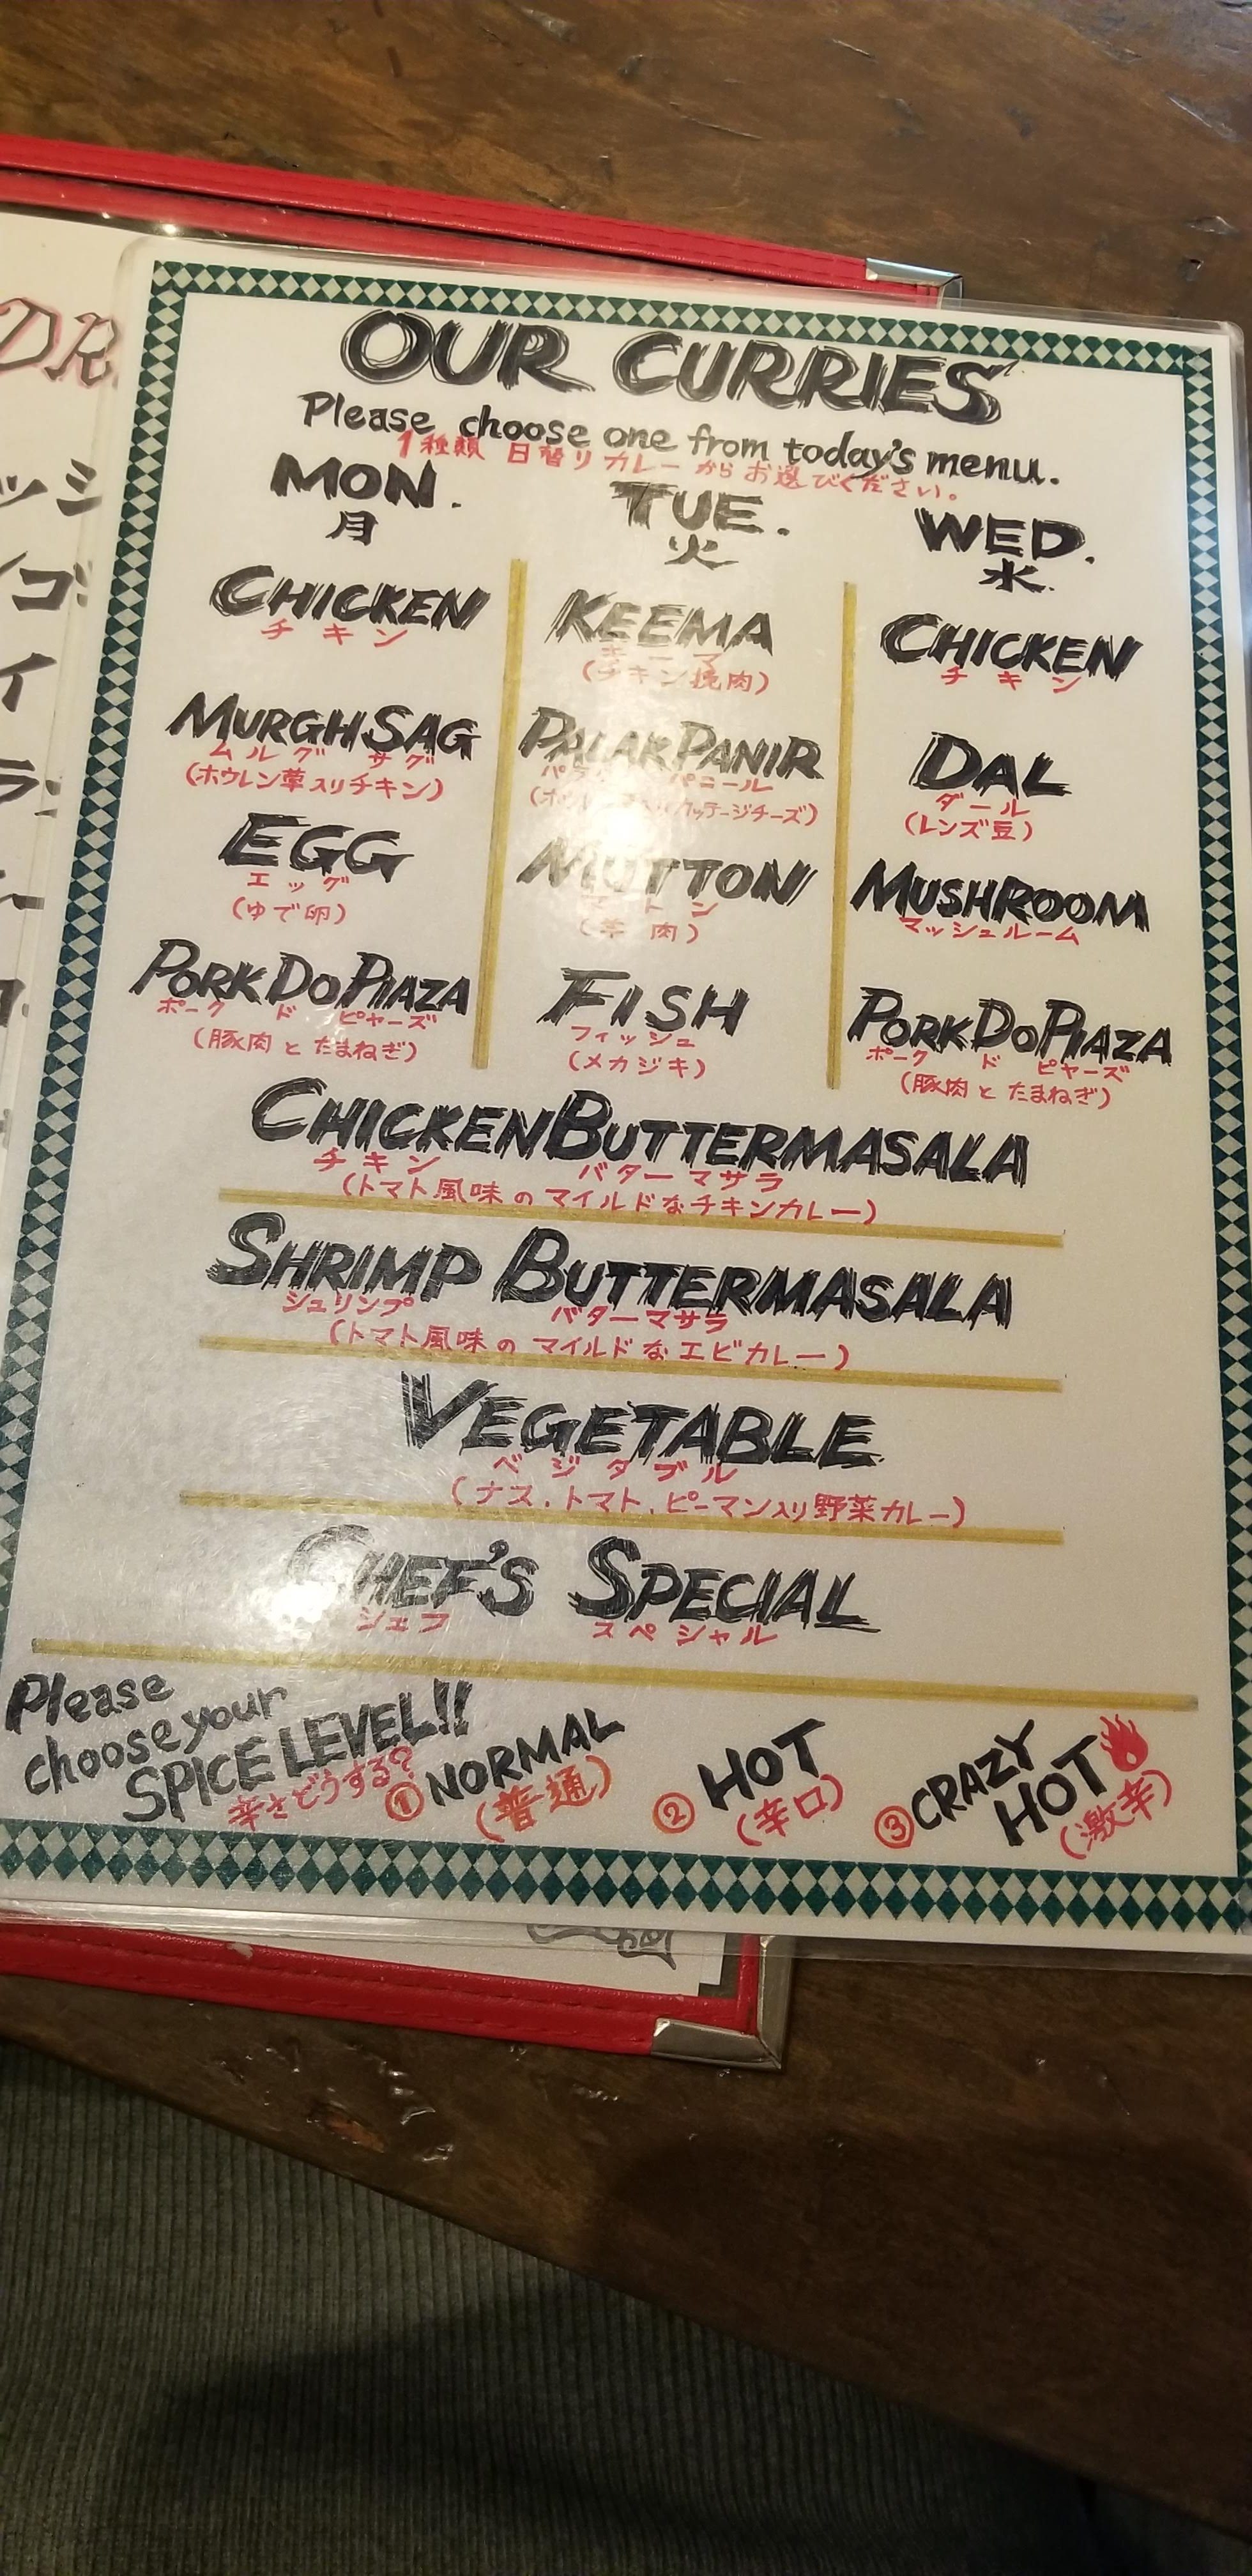 OUR CURRIES
Please choose one from today's menu.
1種類 日替りカレーからお選びください。
MON.
月
CHICKEN
チキン
MURGH SAG
ムルグ サグ
(ホウレン草入りチキン)
EGG
エッグ
(ゆで卵)
PORK DO PIAZA
ポーク ド ピヤーズ
(豚肉とたまねぎ)
TUE.
火
KEEMA
キーマ
(チキン挽肉)
PALAK PANIR
パニール
MUTTON
マトン
(羊肉)
FISH
フィッシュ
(メカジキ)
WED.
水
CHICKEN
チキン
DAL
ダール
(レンズ豆)
MUSHROOM
マッシュルーム
PORK DO PIAZA
ポーク ド ピヤーズ
(豚肉とたまねぎ)
CHICKEN BUTTERMASALA
チキン バターマサラ
(トマト風味のマイルドなチキンカレー)
SHRIMP BUTTERMASALA
シュリンプ バターマサラ
(トマト風味のマイルドなエビカレー)
VEGETABLE
ベジタブル
(ナス、トマト、ピーマン入り野菜カレー)
CHEF'S SPECIAL
シェフ スペシャル
Please
choose your
SPICE LEVEL!!
辛さどうする?
①NORMAL
(普通)
②HOT
(辛口)
③CRAZY
HOT
(激辛)